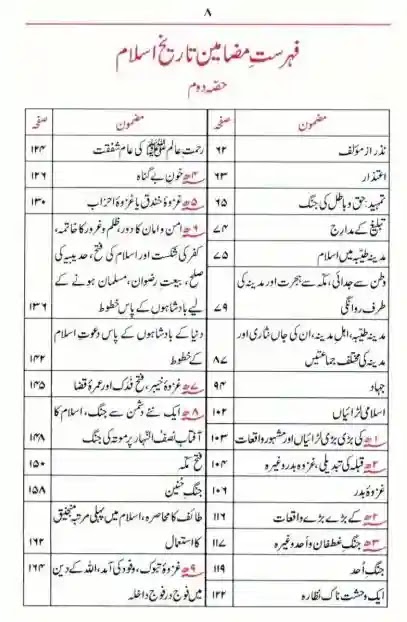 ۸
فہرستِ مضامین تاریخ اسلام
حصہ دوم
مضمون صفحہ
نذر از مؤلف ۶۲
اعتذار ۶۳
تمہید: حق و باطل کی جنگ ۶۵
تبلیغ کے مدارج ۷۴
مدینہ طیّبہ میں اسلام ۷۵
وطن سے جدائی، مکّہ سے ہجرت اور مدینہ کی
طرف روانگی ۷۹
مدینہ طیّبہ، اہل مدینہ، ان کی جاں نثاری اور
مدینہ کی مختلف جماعتیں ۸۷
جہاد ۹۴
اسلامی لڑائیاں ۱۰۲
۱ھ کی بڑی بڑی لڑائیاں اور مشہور واقعات ۱۰۳
۲ھ قبلہ کی تبدیلی، غزوۂ بدر وغیرہ ۱۰۴
غزوۂ بدر ۱۰۶
۲ھ کے بڑے بڑے واقعات ۱۱۶
۳ھ جنگِ غطفان و اُحد وغیرہ ۱۱۷
جنگِ اُحد ۱۱۹
ایک وحشت ناک نظارہ ۱۲۲
مضمون صفحہ
رحمتِ عالم ﷺ کی عام شفقت ۱۲۴
۴ھ خونِ بے گناہ ۱۲۶
۵ھ غزوۂ خندق یا غزوۂ احزاب ۱۳۰
۶ھ امن و امان کا دور، ظلم و غرور کا خاتمہ،
کفر کی شکست اور اسلام کی فتح، حدیبیہ کی
صلح، بیعتِ رضوان، مسلمان ہونے کے
لیے بادشاہوں کے پاس خطوط ۱۳۶
دنیا کے بادشاہوں کے پاس دعوتِ اسلام
کے خطوط ۱۴۲
۷ھ غزوۂ خیبر، فتح فدک اور عمرۂ قضا ۱۴۵
۸ھ ایک نئے دشمن سے جنگ، اسلام کا
آفتاب نصف النّہار پر موتہ کی جنگ ۱۴۸
فتحِ مکّہ ۱۵۰
جنگِ حُنین ۱۵۸
طائف کا محاصرہ، اسلام میں پہلی مرتبہ منجنیق
کا استعمال ۱۶۲
۹ھ غزوۂ تبوک، وفود کی آمد، اللہ کے دین
میں فوج در فوج داخلہ ۱۶۴